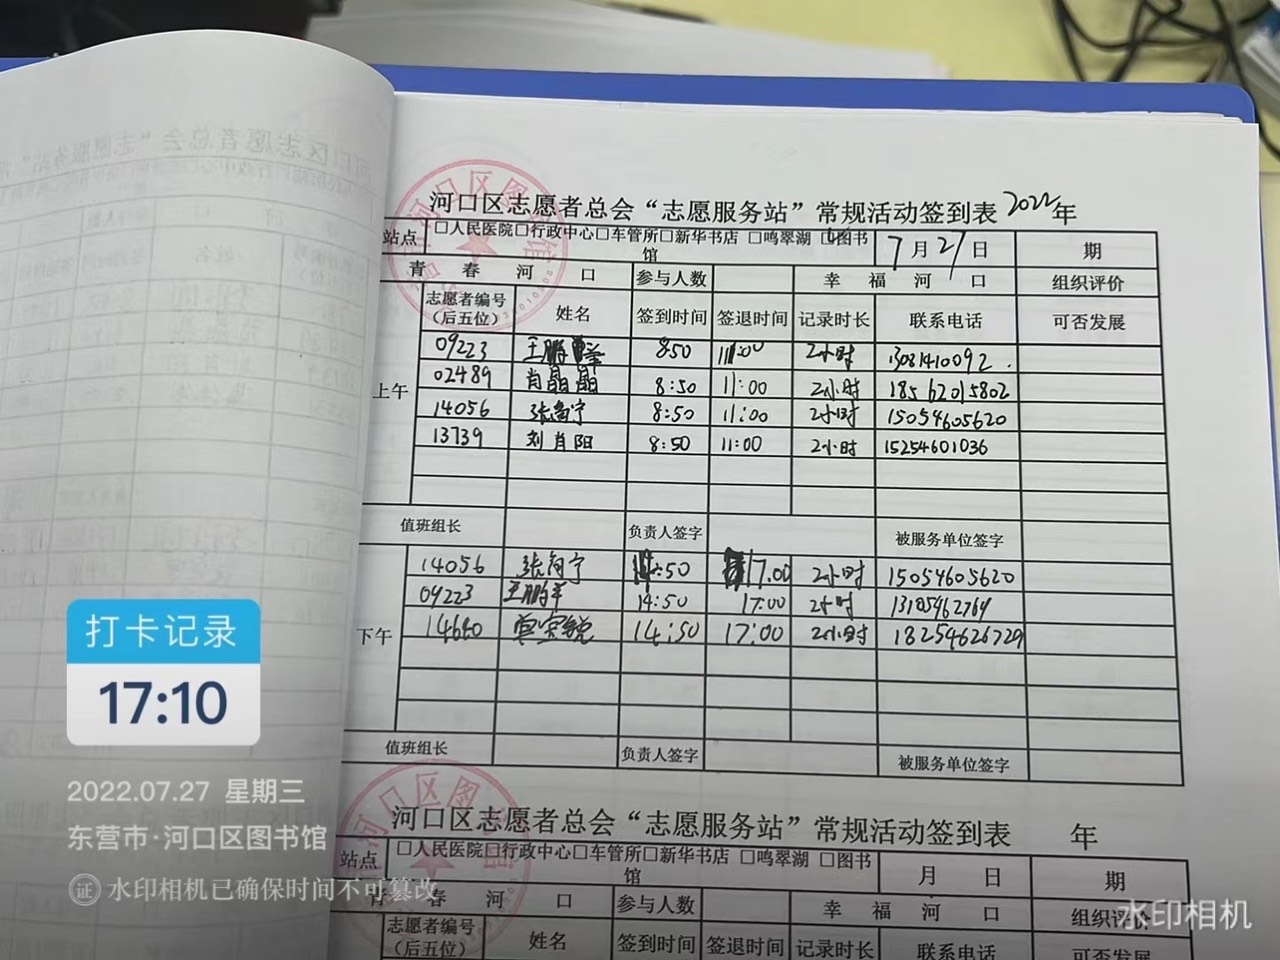 河口区志愿者总会“志愿服务站”常规活动签到表 2022年
站点 □人民医院□行政中心□车管所□新华书店 □鸣翠湖 □图书馆 7月27日 期
青春河口 参与人数 幸福河口 组织评价
志愿者编号（后五位） 姓名 签到时间 签退时间 记录时长 联系电话 可否发展
上午
09223 王鹏 8:50 11:00 2小时 13081410092.
02489 肖晶晶 8:50 11:00 2小时 18562015802
14056 张 宁 8:50 11:00 2小时 15054605620
13739 刘肖阳 8:50 11:00 2小时 15254601036
值班组长 负责人签字 被服务单位签字
下午
14056 张 宁 :50 17.00 2小时 15054605620
09223 王鹏 14:50 17:00 2小时 13105462769
14640 14:50 17:00 2小时 18254626729
值班组长 负责人签字 被服务单位签字
河口区志愿者总会“志愿服务站”常规活动签到表 年
站点 □人民医院□行政中心□车管所□新华书店 □鸣翠湖 □图书馆 月 日 期
青春河口 参与人数 幸福河口 组织评价
志愿者编号（后五位） 姓名 签到时间 签退时间 记录时长 联系电话 可否发展
打卡记录
17:10
2022.07.27 星期三
东营市·河口区图书馆
证 水印相机已确保时间不可篡改
水印相机